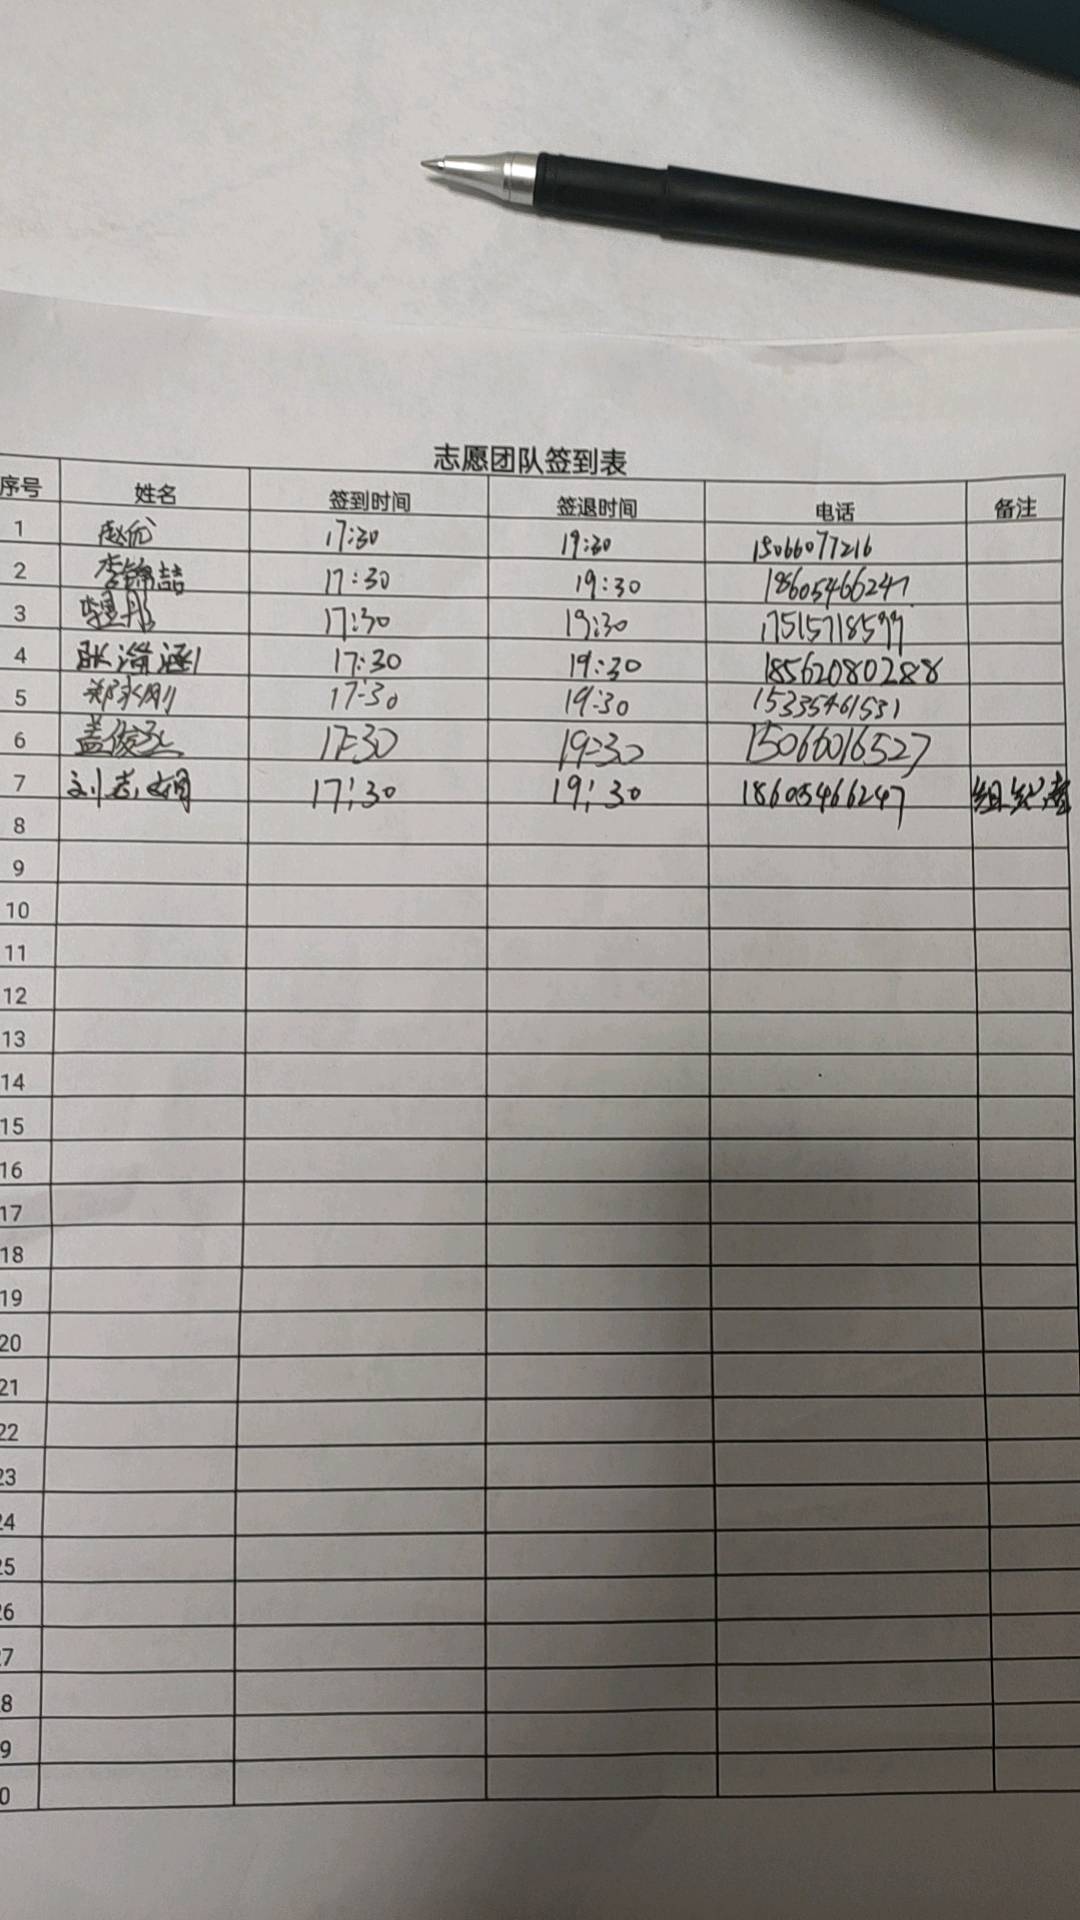 志愿团队签到表
序号 姓名 签到时间 签退时间 电话 备注
1 赵优 17:30 19:30 15066077216
2 李锦喆 17:30 19:30 18605466247
3 17:30 19:30 17515718599
4 张 涵 17:30 19:30 18562080288
5 郑永刚 17:30 19:30 15335461531
6 盖俊 17:30 19:30 15066016527
7 刘志娟 17:30 19:30 18605466247 组织者
8
9
10
11
12
13
14
15
16
17
18
19
20
21
22
23
24
25
26
27
8
9
0